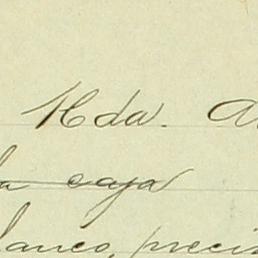 Hda. A
la caja
lanco, preci